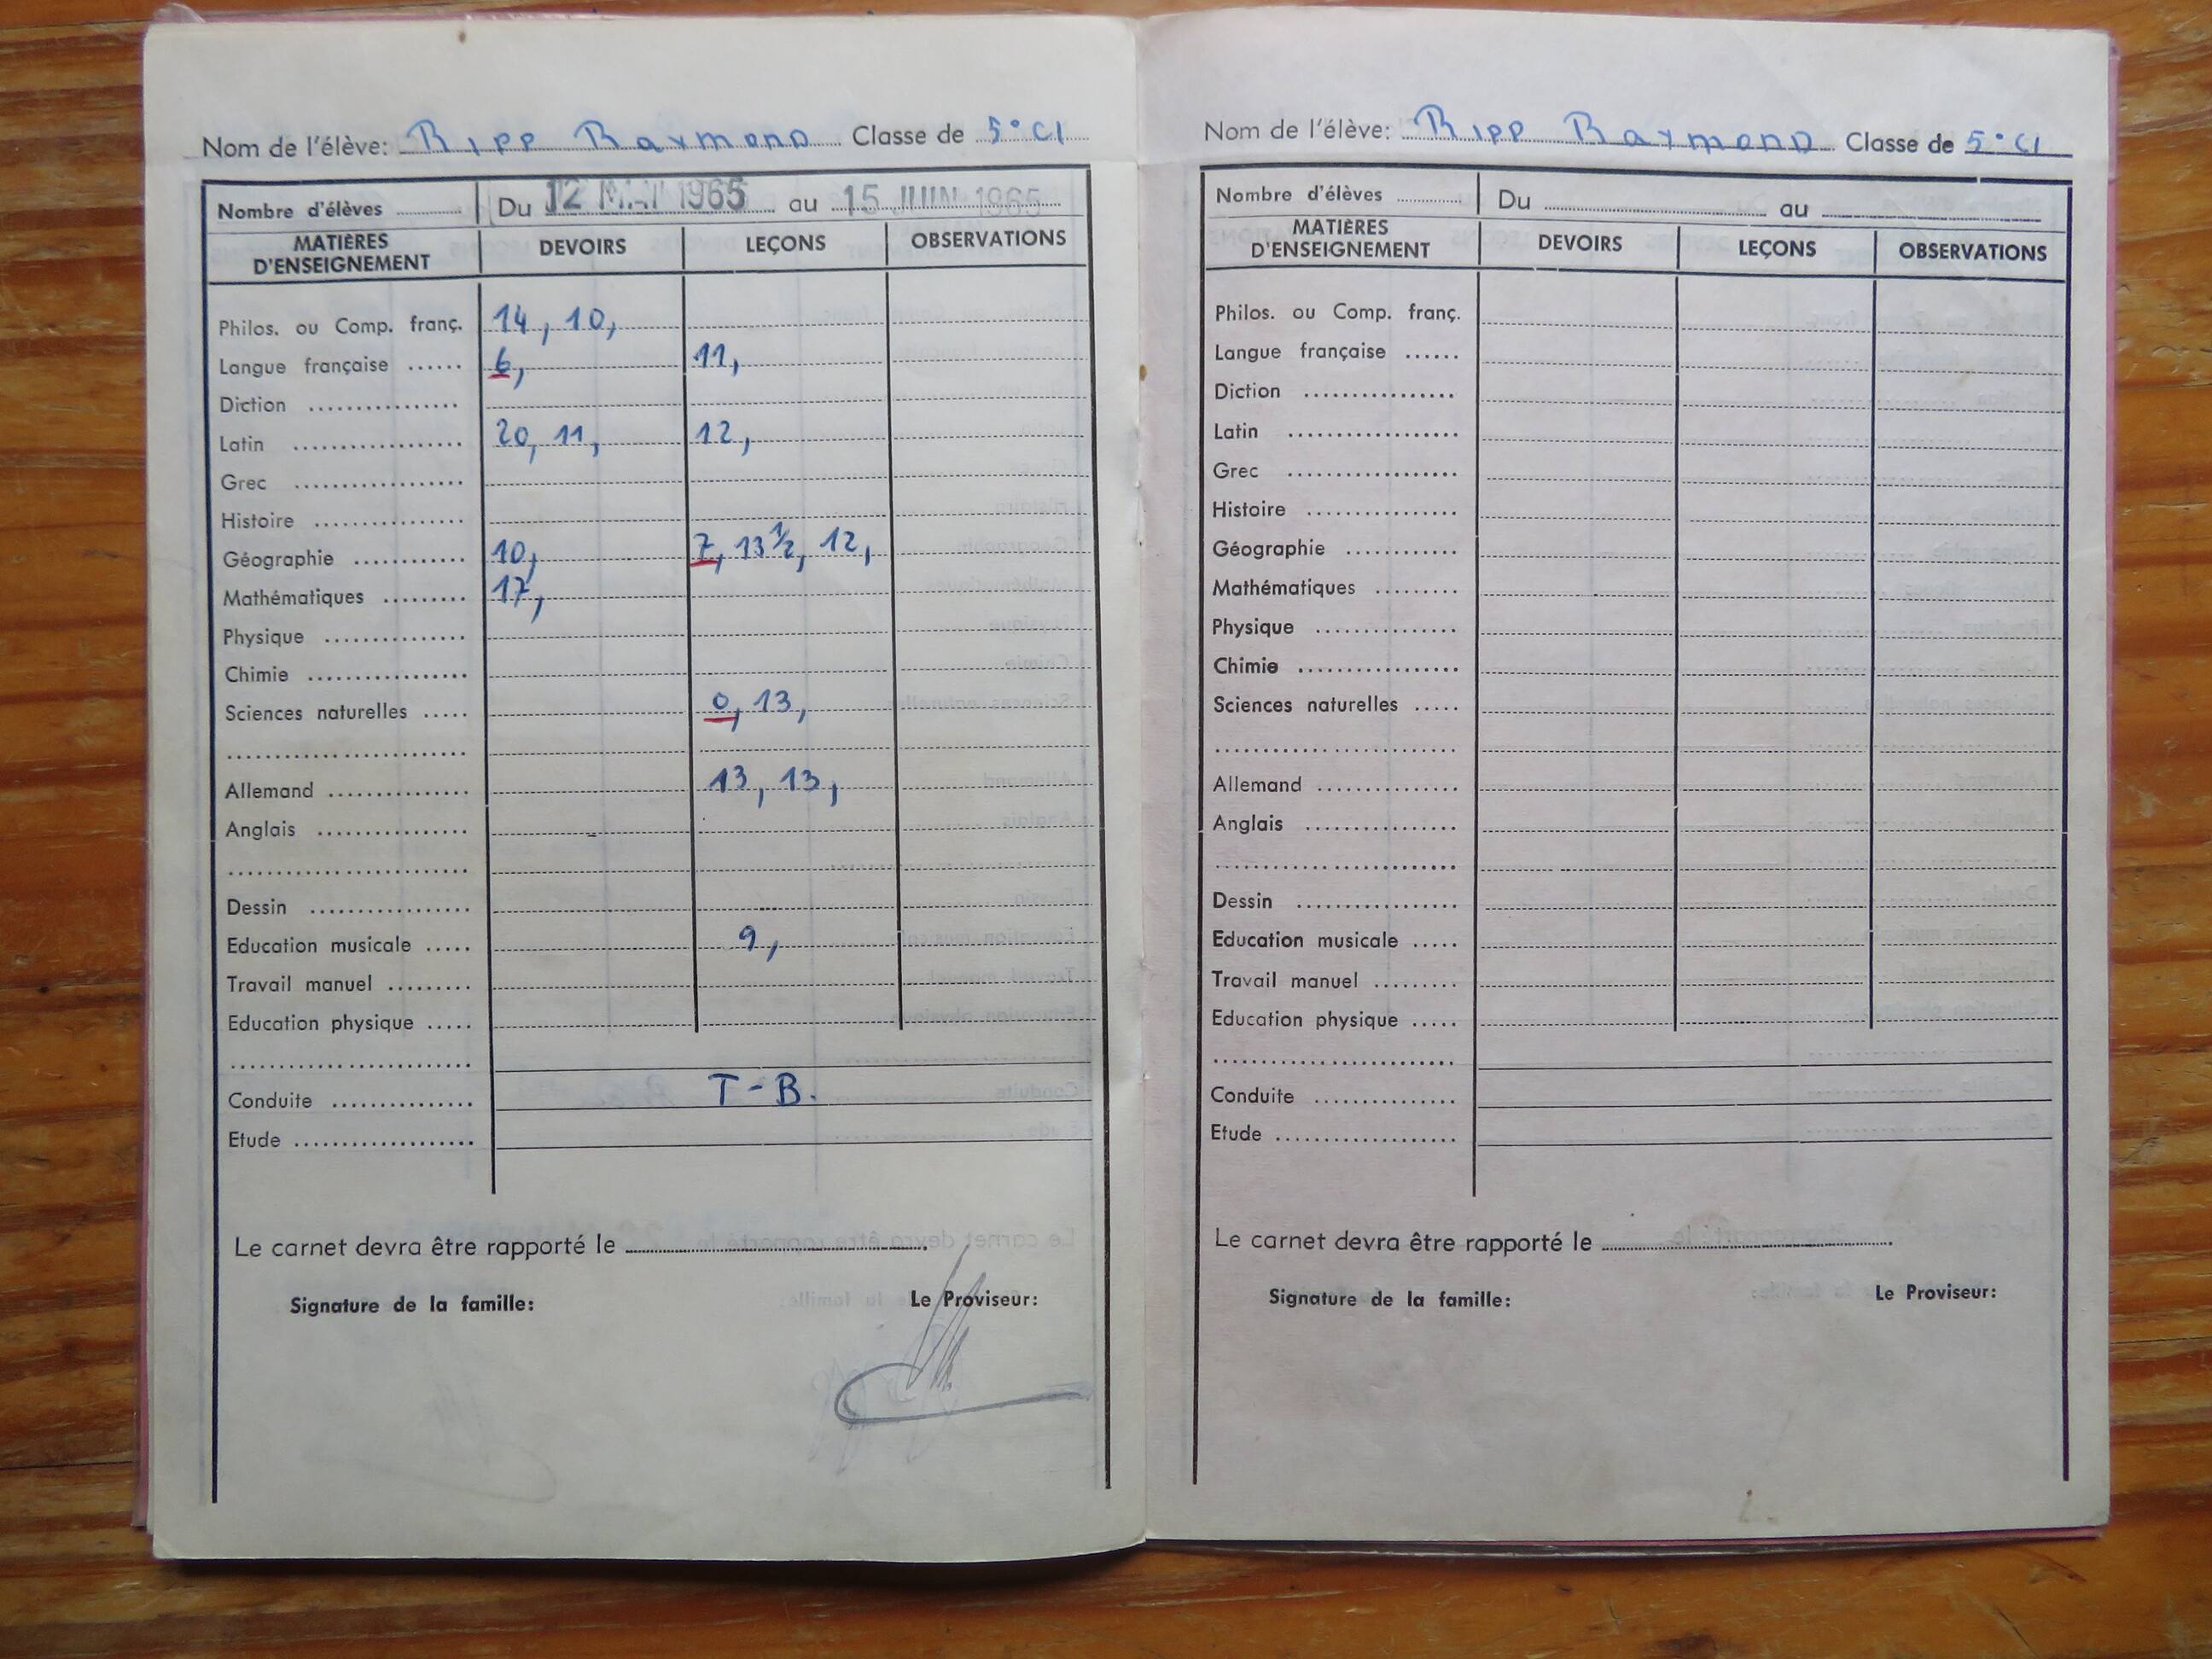 Nom de l'élève: Ripp Raymond Classe de 5° CI
Nombre d'élèves Du 12 MAI 1965 au 15 JUIN 1965
MATIÈRES D'ENSEIGNEMENT DEVOIRS LEÇONS OBSERVATIONS
Philos. ou Comp. franç. 14, 10,
Langue française ...... 6, 11,
Diction ................
Latin .................. 20, 11, 12,
Grec ..................
Histoire ................
Géographie ............ 10, 7, 13 ½, 12,
Mathématiques ......... 17,
Physique ...............
Chimie .................
Sciences naturelles ..... 0, 13,
Allemand ............... 13, 13,
Anglais ................
Dessin .................
Education musicale ..... 9,
Travail manuel .........
Education physique .....
Conduite ............... T-B.
Etude ...................
Le carnet devra être rapporté le
Signature de la famille: Le Proviseur:
Nom de l'élève: Ripp Raymond Classe de 5° CI
Nombre d'élèves Du au
MATIÈRES D'ENSEIGNEMENT DEVOIRS LEÇONS OBSERVATIONS
Philos. ou Comp. franç.
Langue française ......
Diction ................
Latin ..................
Grec ..................
Histoire ................
Géographie ............
Mathématiques .........
Physique ...............
Chimie .................
Sciences naturelles .....
Allemand ...............
Anglais ................
Dessin .................
Education musicale .....
Travail manuel .........
Education physique .....
Conduite ...............
Etude ...................
Le carnet devra être rapporté le
Signature de la famille: Le Proviseur: